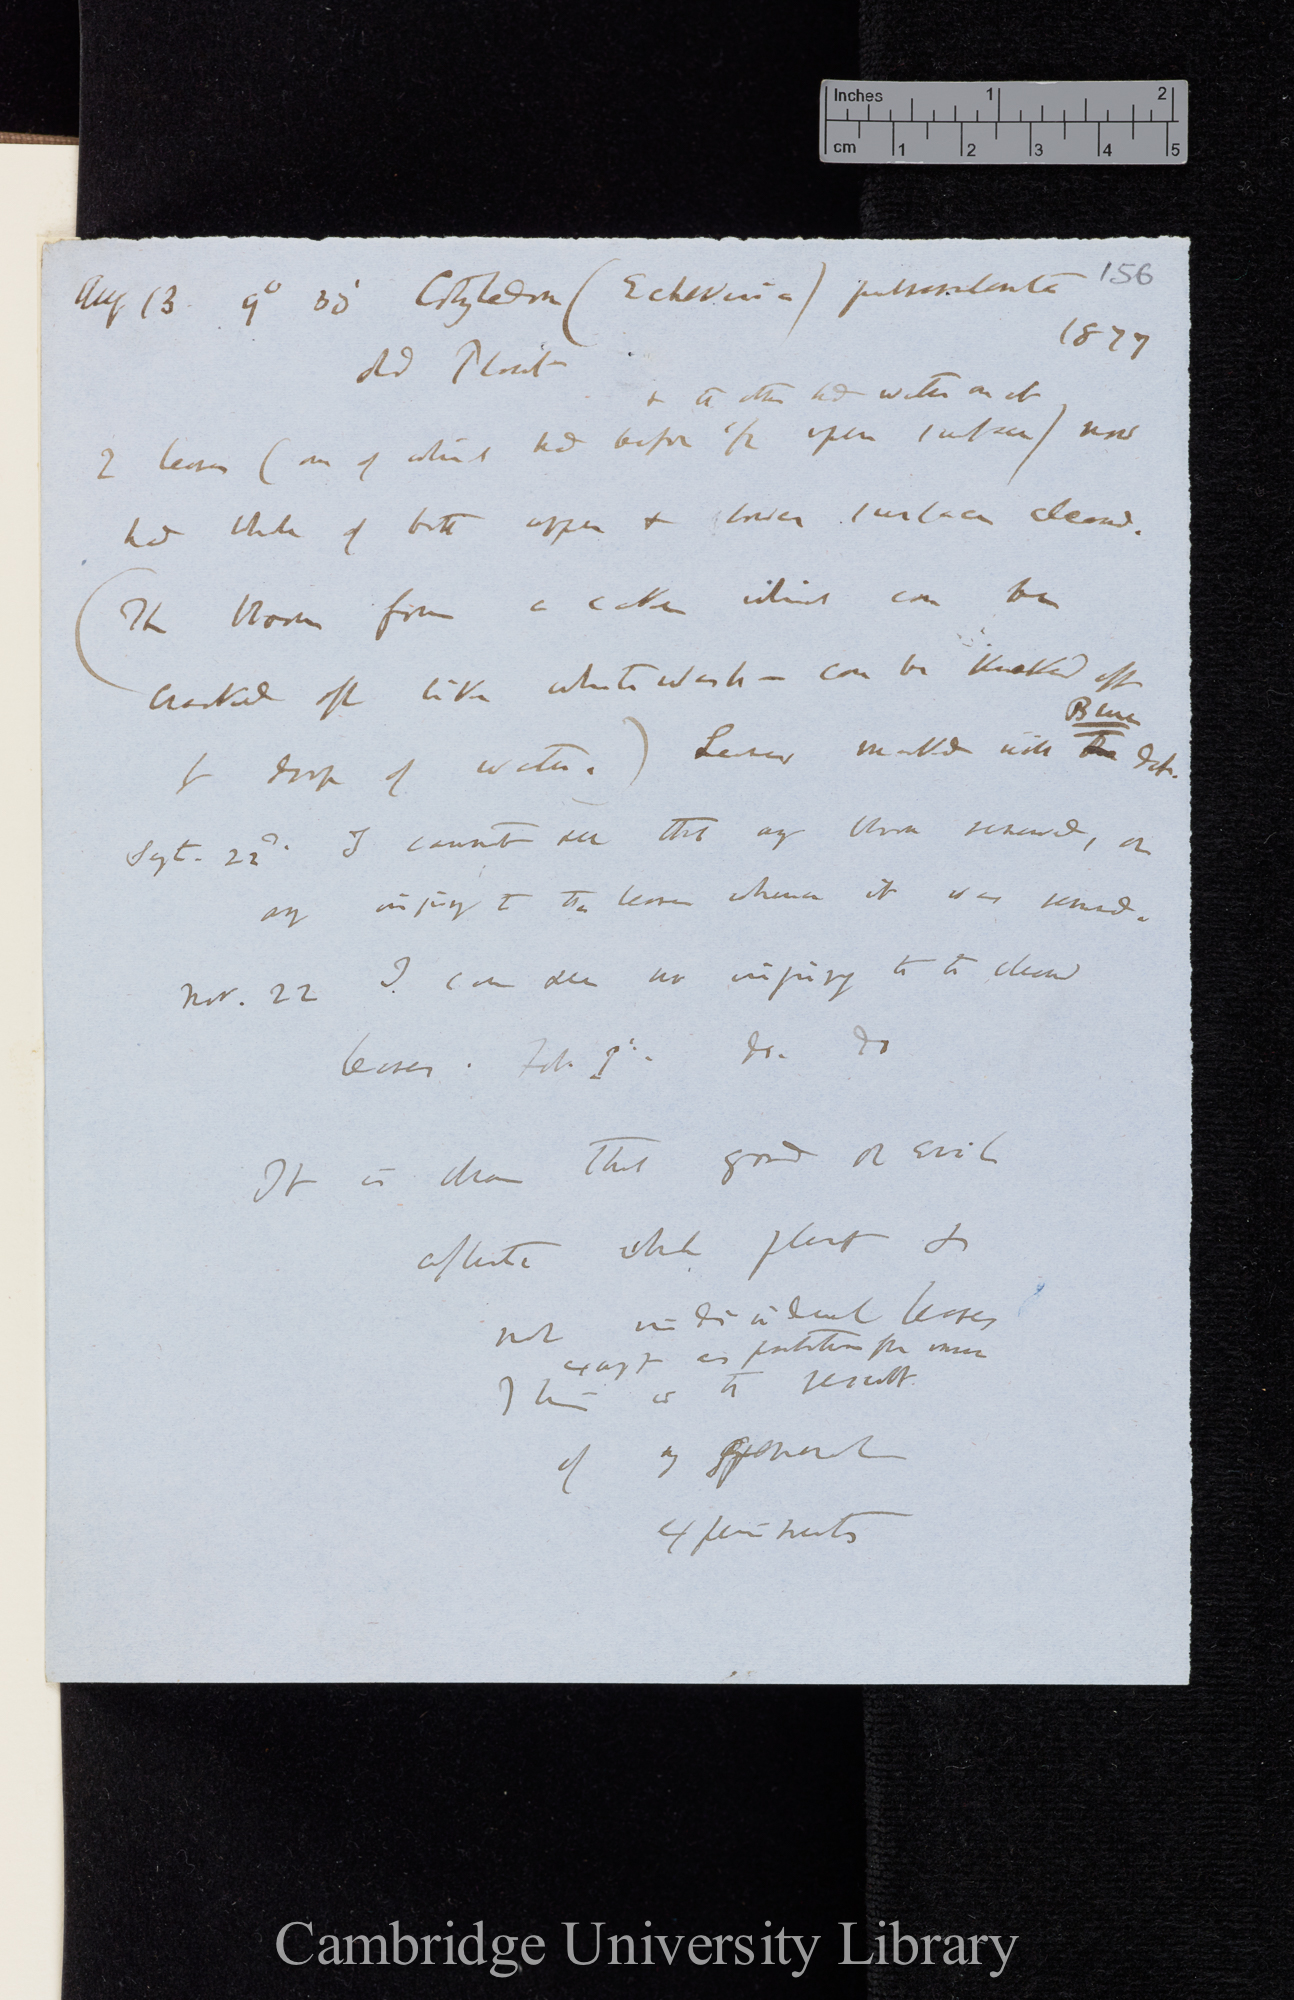 Inches 1 2
cm 1 2 3 4 5
156
Aug 13. 9° 35' Cotyledon (Echeveria) pulverulenta
1877
old Plant
& the other had water on it
2 leaves (one of which had before 1/2 upper surface) now
had whole of both upper & lower surfaces cleaned.
(The bloom forms a cake which can be
cracked off like white wash— can be knocked off
by drop of water.) Leaves marked with Blue date.
Sept. 22d. I cannot see that any bloom renewed, or
any injury to the leaves whence it was removed.
Nov. 22 I can see no injury to the cleaned
leaves. Feb. do. do
It is clear that good or evil
affects whole plant &
not individual leaves
except as protection from
This is the result
of my general
experiments
Cambridge University Library